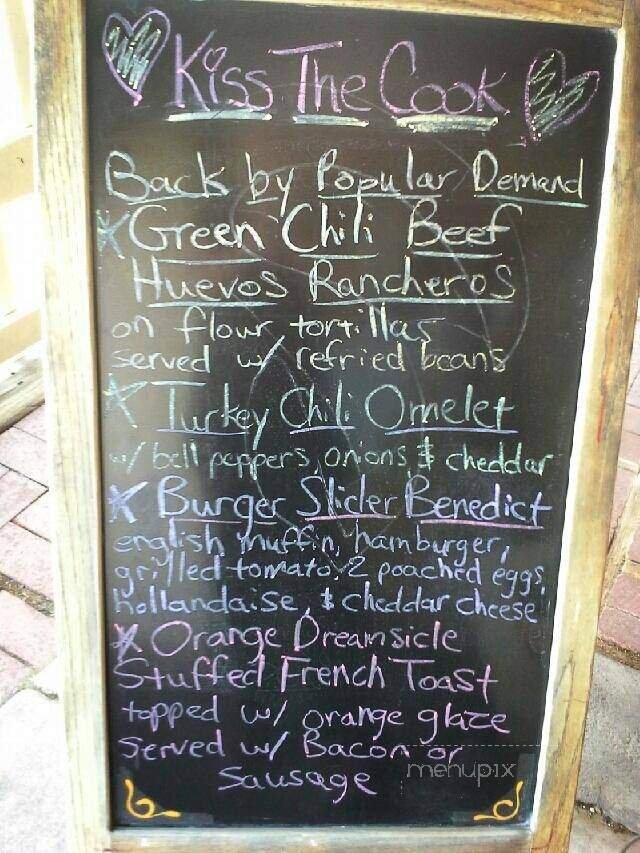 Kiss The Cook
Back by Popular Demand
Green Chili Beef
Huevos Rancheros
on flour tortillas
served w/ refried beans
Turkey Chili Omelet
w/ bell peppers, onions, & cheddar
Burger Slider Benedict
english muffin, hamburger,
grilled tomato, 2 poached eggs,
hollandaise, & cheddar cheese
Orange Dreamsicle
Stuffed French Toast
topped w/ orange glaze
Served w/ Bacon or
Sausage
menupix